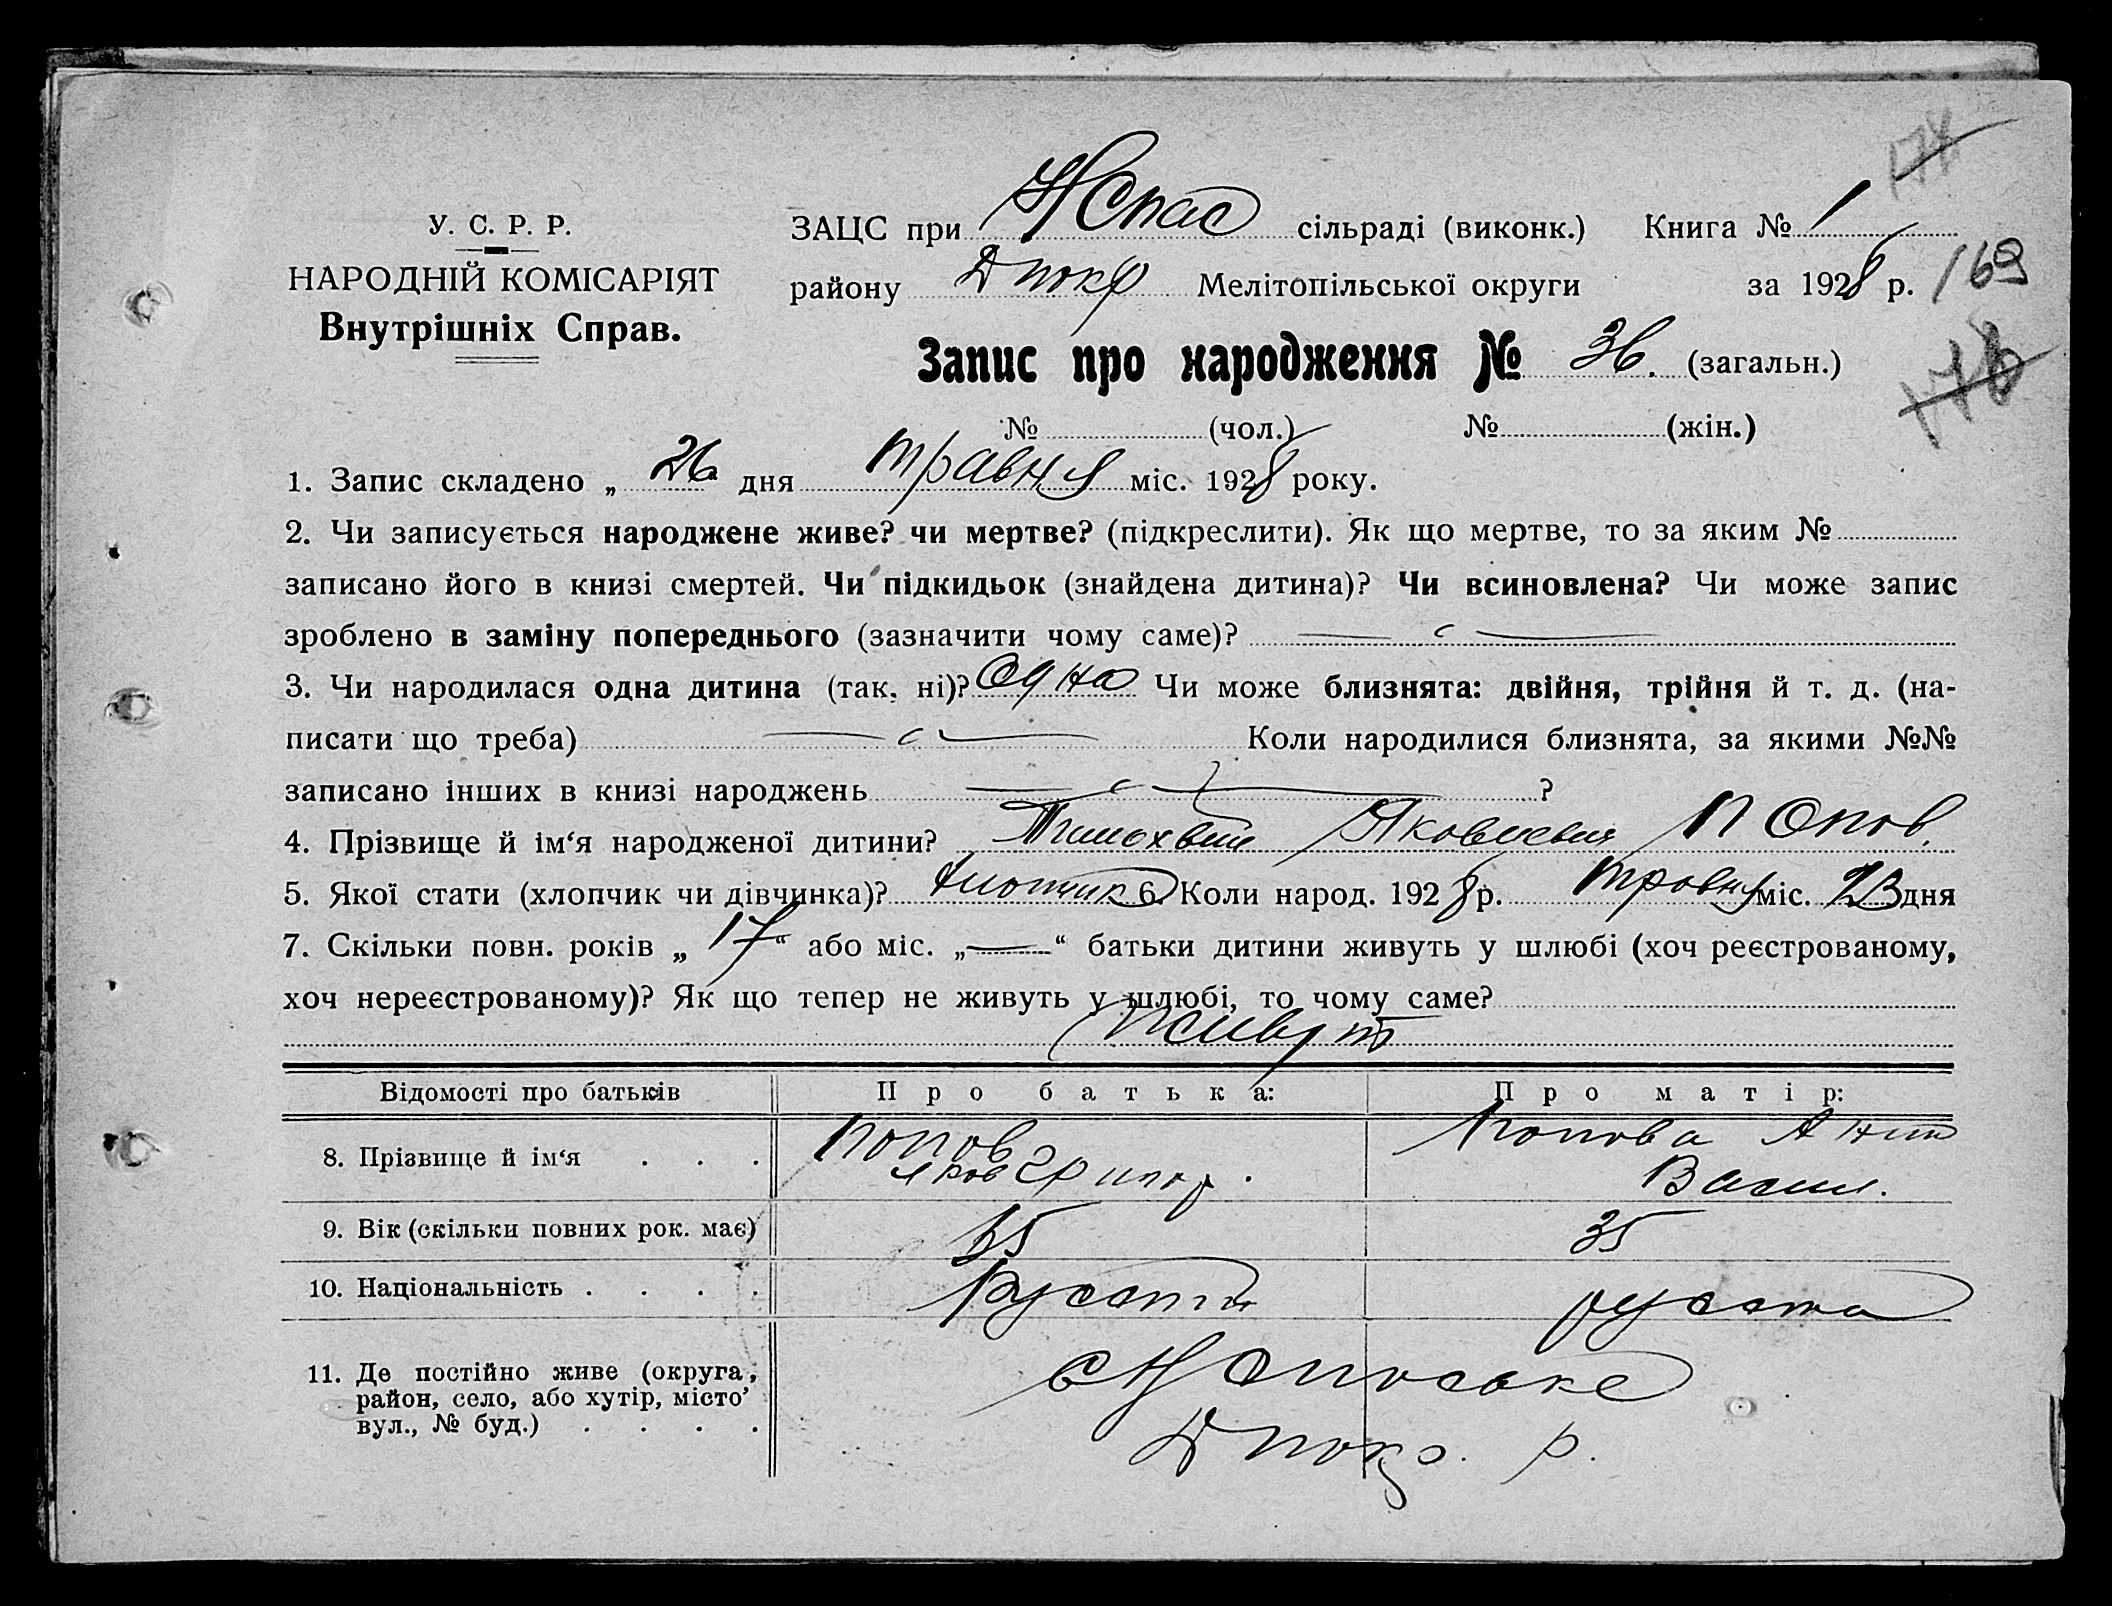 178
У. С. Р. Р.
НАРОДНІЙ КОМІСАРІЯТ
Внутрішніх Справ.
ЗАЦС при НСпас сільраді (виконк.) Книга № 1
району Дпокр Мелітопільської округи за 1928 р. 169
Запис про народження № 36. (загальн.)
178
№ (чол.) № (жін.)
1. Запис складено „ 26 " дня травня міс. 1928 року.
2. Чи записується народжене живе? чи мертве? (підкреслити). Як що мертве, то за яким №
записано його в книзі смертей. Чи підкидьок (знайдена дитина)? Чи всиновлена? Чи може запис
зроблено в заміну попереднього (зазначити чому саме)?
3. Чи народилася одна дитина (так, ні)? Одна Чи може близнята: двійня, трійня й т. д. (на-
писати що треба) Коли народилися близнята, за якими №№
записано інших в книзі народжень ?
4. Прізвище й ім'я народженої дитини? Тимохвий Яковлевич Попов.
5. Якої стати (хлопчик чи дівчинка)? Хлопчик 6. Коли народ. 1928 р. травня міс. 23 дня
7. Скільки повн. років „ 17 " або міс. „ — " батьки дитини живуть у шлюбі (хоч реєстрованому,
хоч нереєстрованому)? Як що тепер не живуть у шлюбі, то чому саме?
Живут
Відомості про батьків Про батька: Про матір:
8. Прізвище й ім'я . . . Попов Попова
Яков Григор. Васил.
9. Вік (скільки повних рок. має) 35 35
10. Національність . . . . русска
11. Де постійно живе (округа,
район, село, або хутір, місто'
вул., № буд.) . . . .
Дпокр. р.